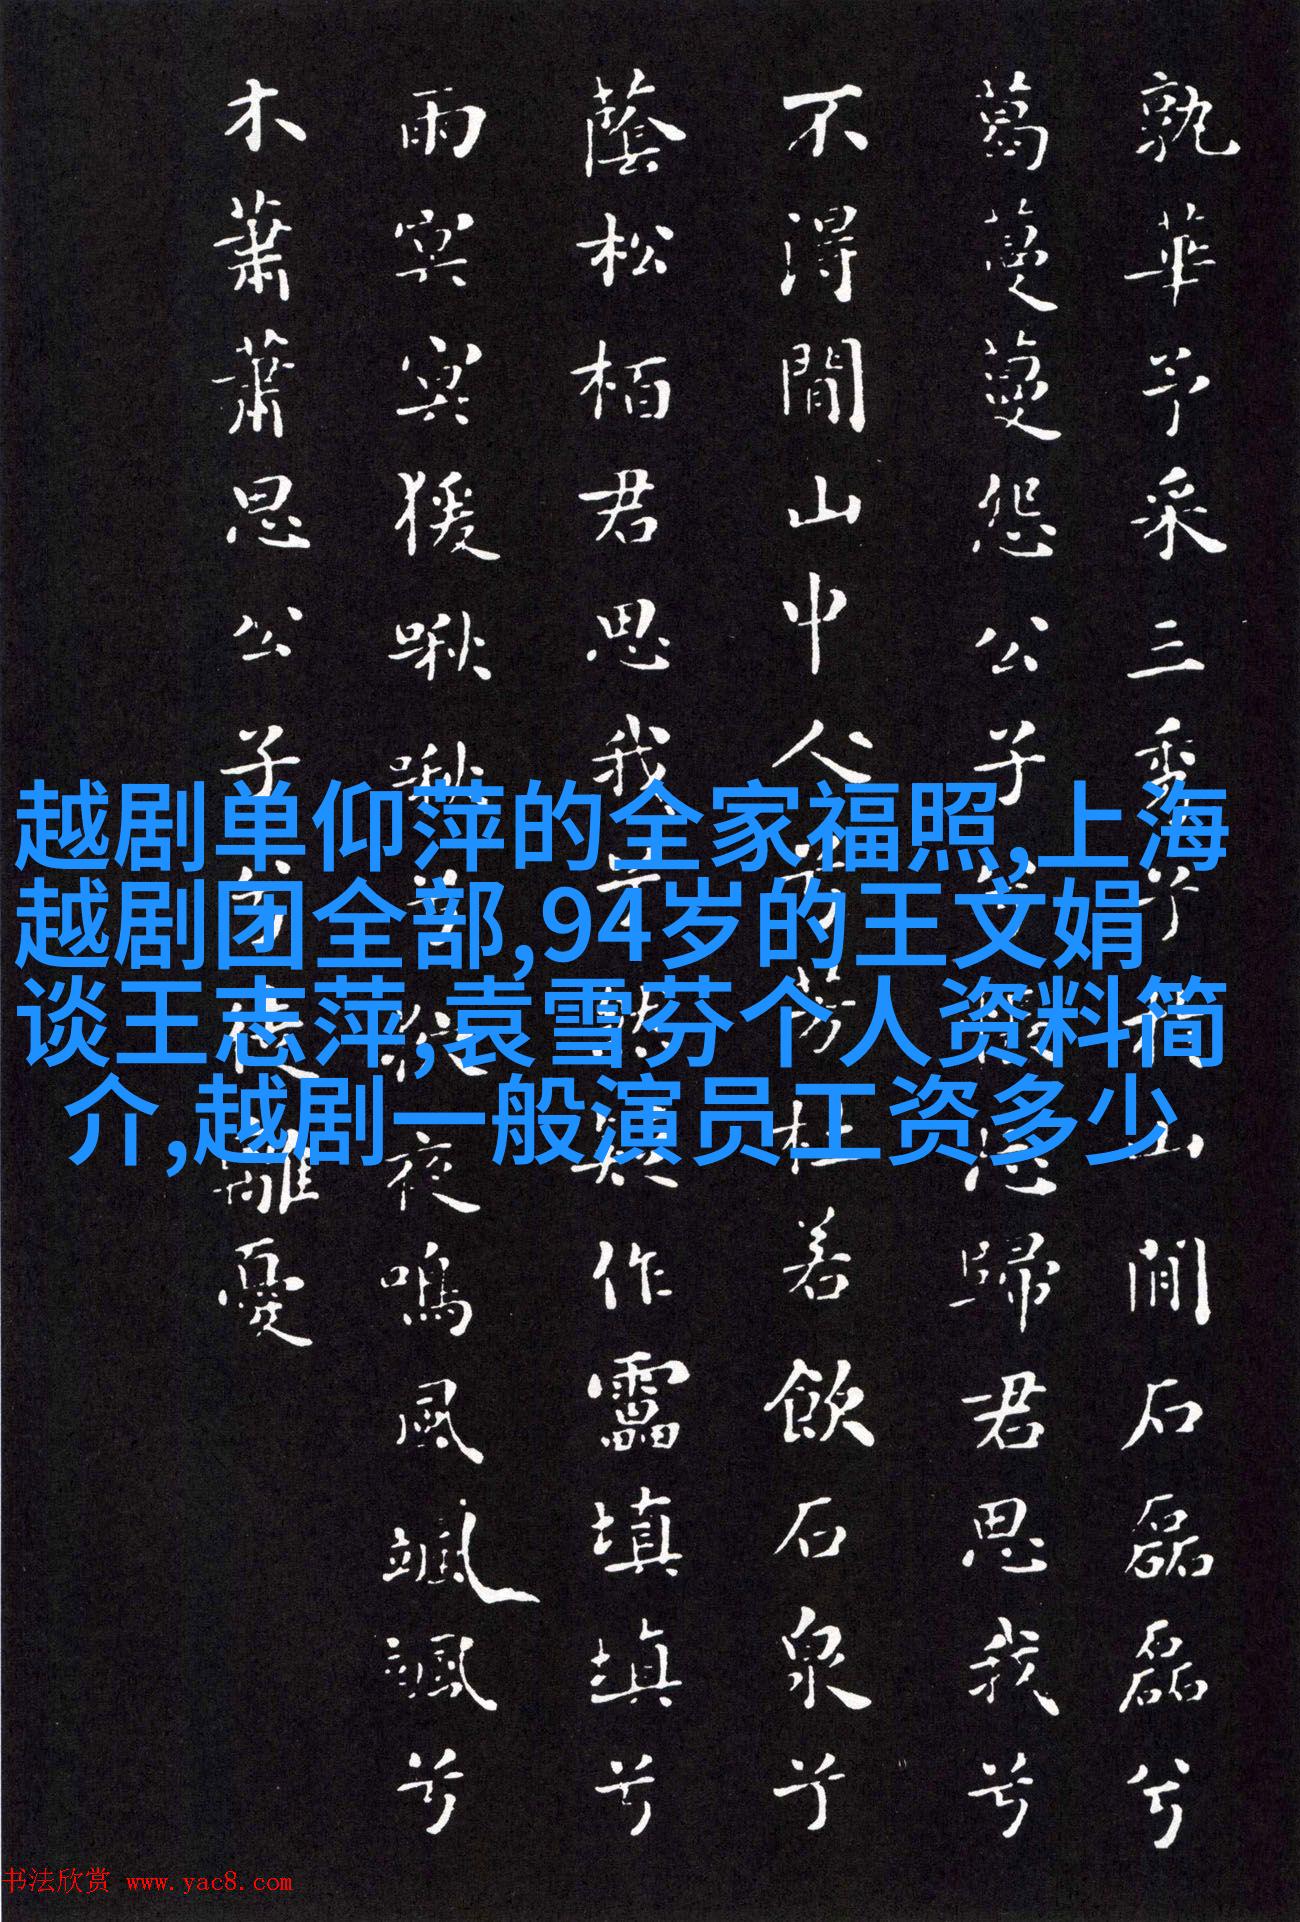 孰華予采三秀兮於山閒石磊磊兮
葛蔓蔓怨公子兮悵忘歸君思我兮
不得閒山中人兮芳杜若飲石泉兮
蔭松栢君思我兮然疑作靁填填兮
雨冥冥猨啾啾兮狖夜鳴風颯颯兮
木蕭蕭思公子兮徒離憂
越剧单仰萍的全家福照,上海
越剧团全部,94岁的王文娟
谈王志萍,袁雪芬个人资料简
介,越剧一般演员工资多少
书法欣赏 www.yac8.com